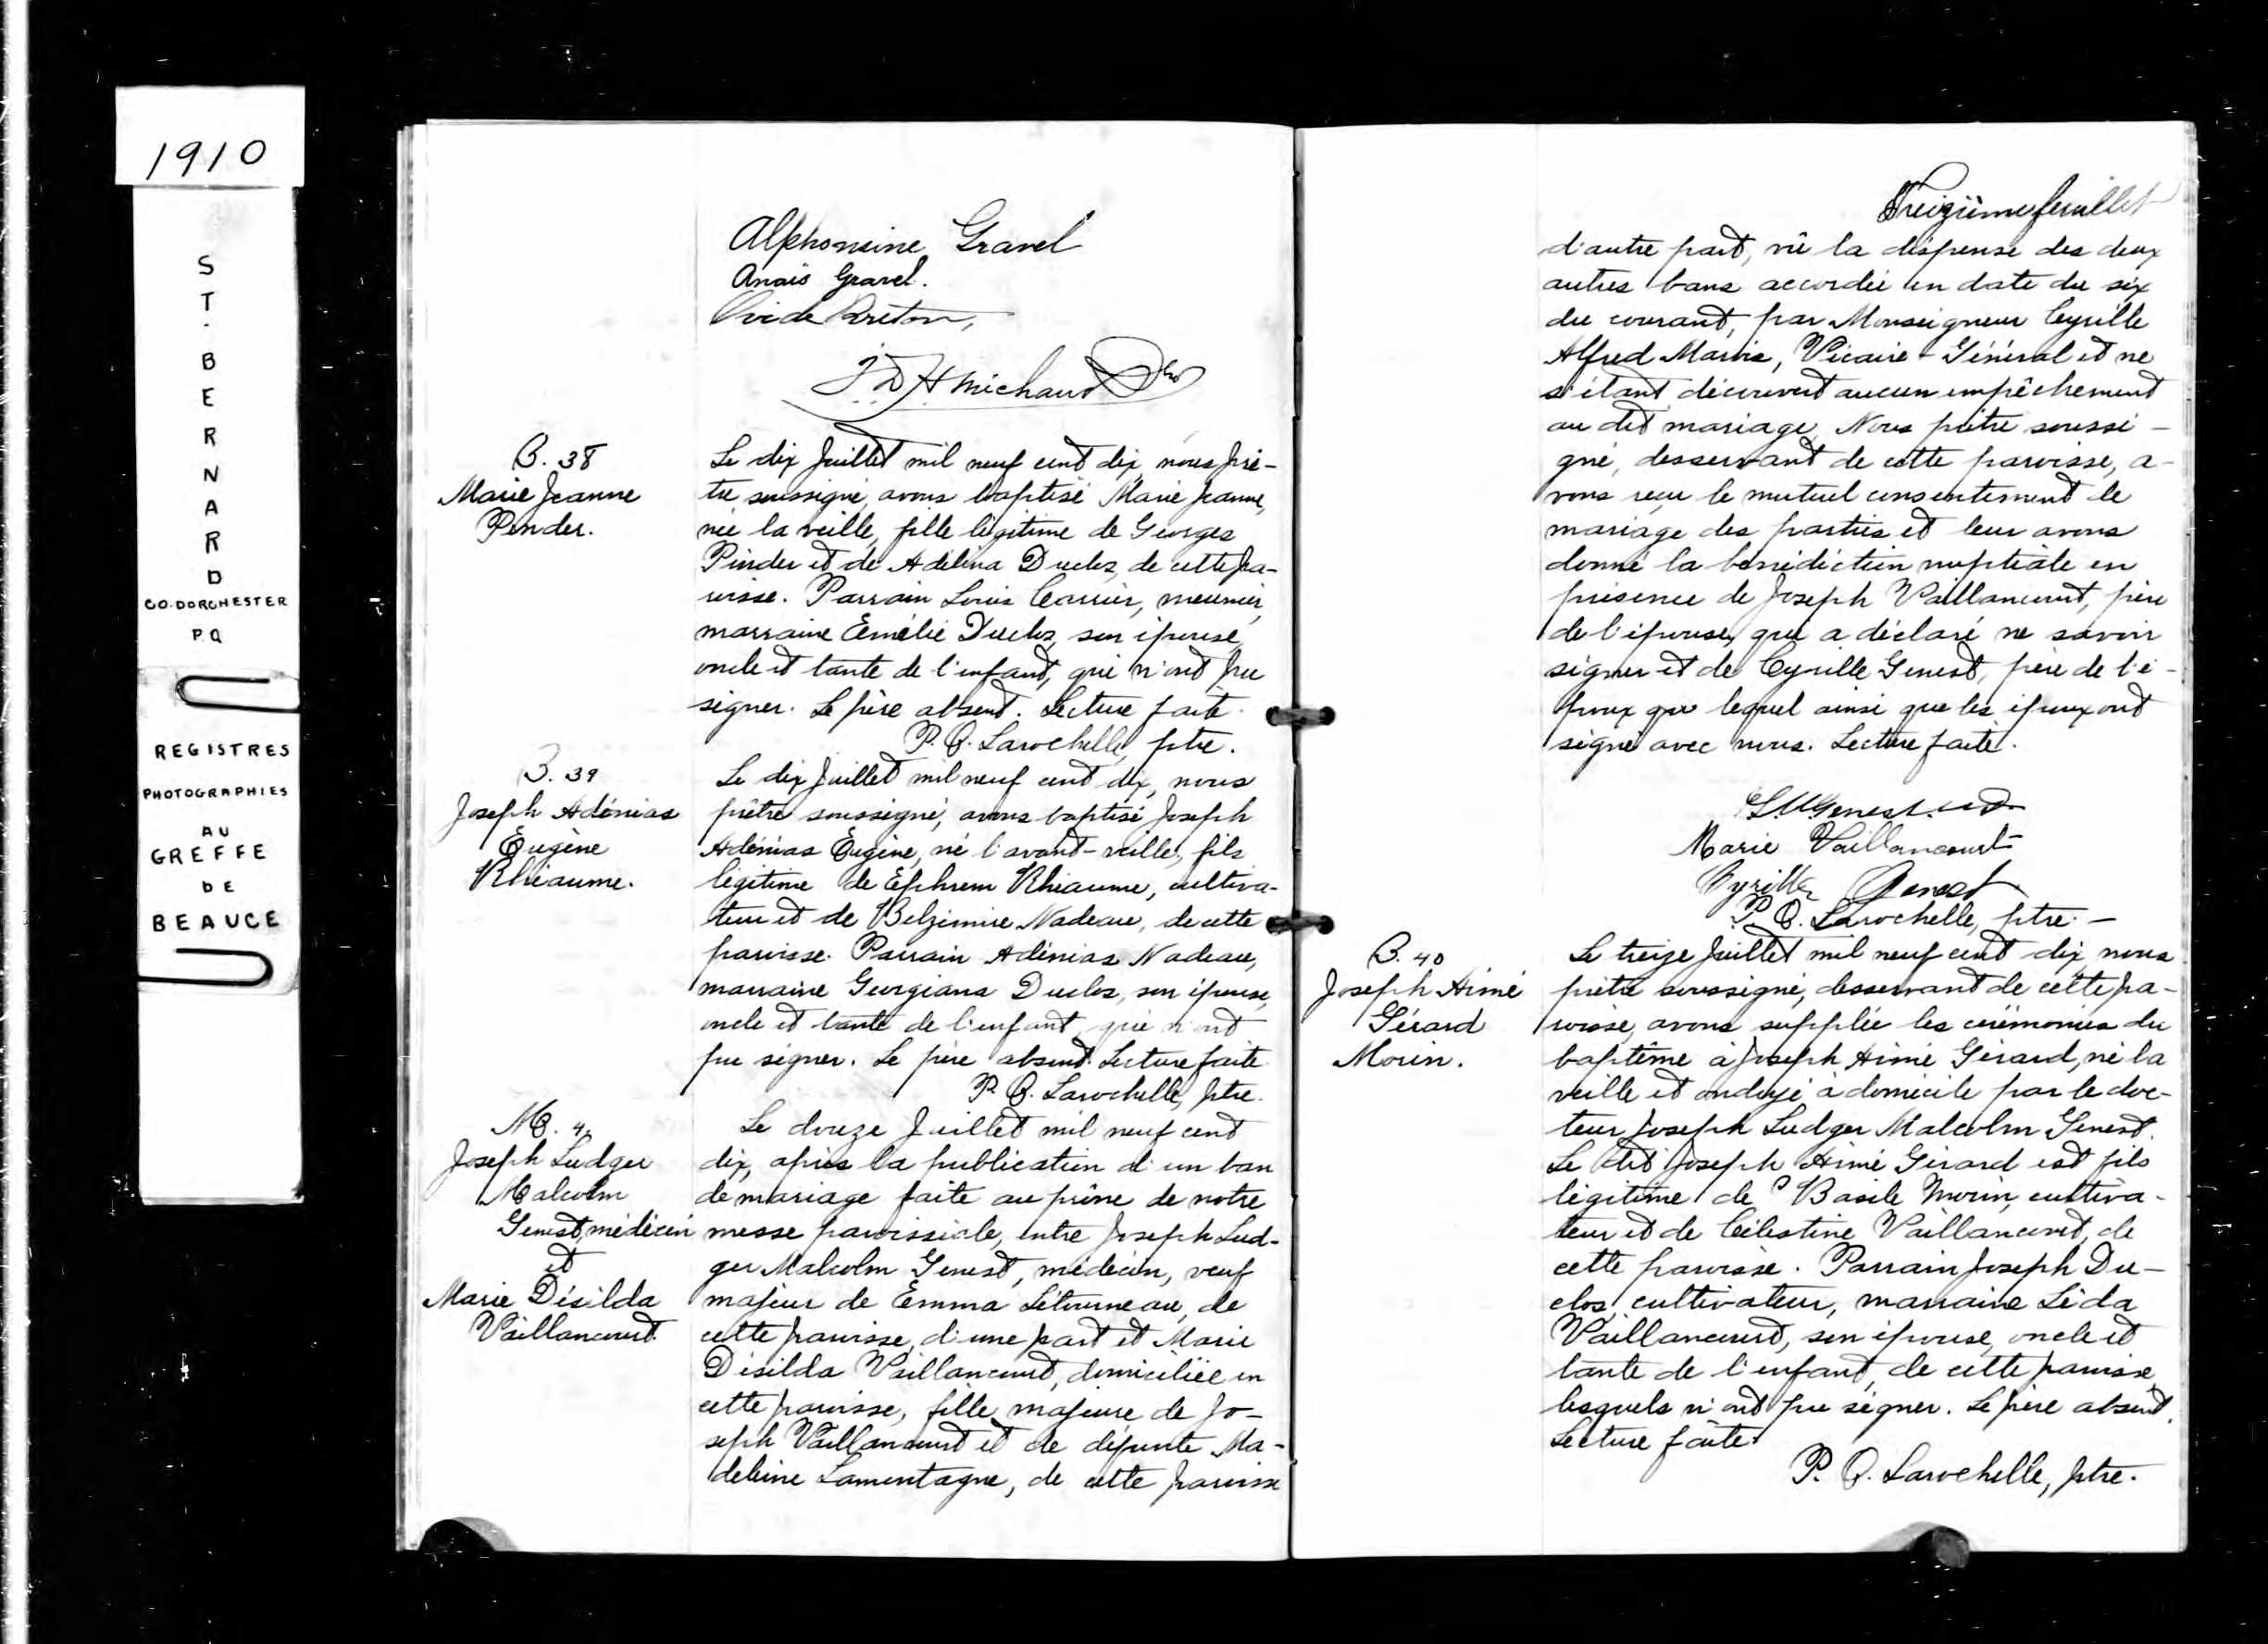 1910
ST. BERNARD
CO. DORCHESTER
P.Q
REGISTRES
PHOTOGRAPHIES
AU
GREFFE
DE
BEAUCE
Alphonsine Gravel
Anaïs Gravel.
Ovide Breton,
J. D. H Michaud Ptre
B. 38
Marie Jeanne
Pinder.
Le dix Juillet mil neuf cent dix, nous prê-
tre soussigné, avons baptisé Marie Jeanne,
née la veille, fille légitime de Georges
Pinder et de Adelina Duclos, de cette pa-
roisse. Parrain Louis Carrier, meunier,
marraine Emélie Duclos, son épouse,
oncle et tante de l'enfant, qui n'ont pu
signer. Le père absent. Lecture faite.
P. Q. Larochelle, ptre.
B. 39
Joseph Adénias
Eugène
Rhéaume.
Le dix Juillet mil neuf cent dix, nous
prêtre soussigné, avons baptisé Joseph
Adénias Eugène, né l'avant-veille, fils
légitime de Ephrem Rhéaume, cultiva-
teur et de Belzimire Nadeau, de cette
paroisse. Parrain Adénias Nadeau,
marraine Georgiana Duclos, son épouse,
oncle et tante de l'enfant qui n'ont
pu signer. Le père absent. Lecture faite
P. Q. Larochelle, ptre.
M. 4.
Joseph Ludger
Malcolm
Genest, médecin
et
Marie Désilda
Vaillancourt.
Le douze Juillet mil neuf cent
dix, après la publication d'un ban
de mariage faite au prône de notre
messe paroissiale, entre Joseph Lud-
ger Malcolm Genest, médecin, veuf
majeur de Emma Létourneau, de
cette paroisse, d'une part et Marie
Désilda Vaillancourt, domiciliée en
cette paroisse, fille majeure de Jo-
seph Vaillancourt et de défunte Ma-
deleine Lamontagne, de cette paroisse
Treizième feuillet
d'autre part, vû la dispense des deux
autres bans accordée en date du six
du courant, par Monseigneur Cyrille
Alfred Marois, Vicaire-Général et ne
s'étant découvert aucun empêchement
au dit mariage, Nous prêtre soussi-
gné, desservant de cette paroisse, a-
vons reçu le mutuel consentement de
mariage des parties et leur avons
donné la bénédiction nuptiale en
présence de Joseph Vaillancourt, père
de l'épouse, qui a déclaré ne savoir
signer et de Cyrille Genest, père de l'é-
poux lequel ainsi que les époux ont
signé avec nous. Lecture faite.
Genest
Marie Vaillancourt
Cyrille Genest
P. Q. Larochelle, ptre.-
B. 40
Joseph Aimé
Gérard
Morin.
Le treize Juillet mil neuf cent dix nous
prêtre soussigné, desservant de cette pa-
roisse, avons supplée les cérémonies du
baptême à Joseph Aimé Gérard, né la
veille et ondoyé a domicile par le doc-
teur Joseph Ludger Malcolm Genest.
Le dit Joseph Aimé Gérard est fils
légitime de Basile Morin, cultiva-
teur et de Célestine Vaillancourt, de
cette paroisse. Parrain Joseph Du-
clos, cultivateur, marraine Léda
Vaillancourt, son épouse, oncle et
tante de l'enfant, de cette paroisse,
lesquels n'ont pu signer. Le père absent.
Lecture faite.
P. Q. Larochelle, ptre.